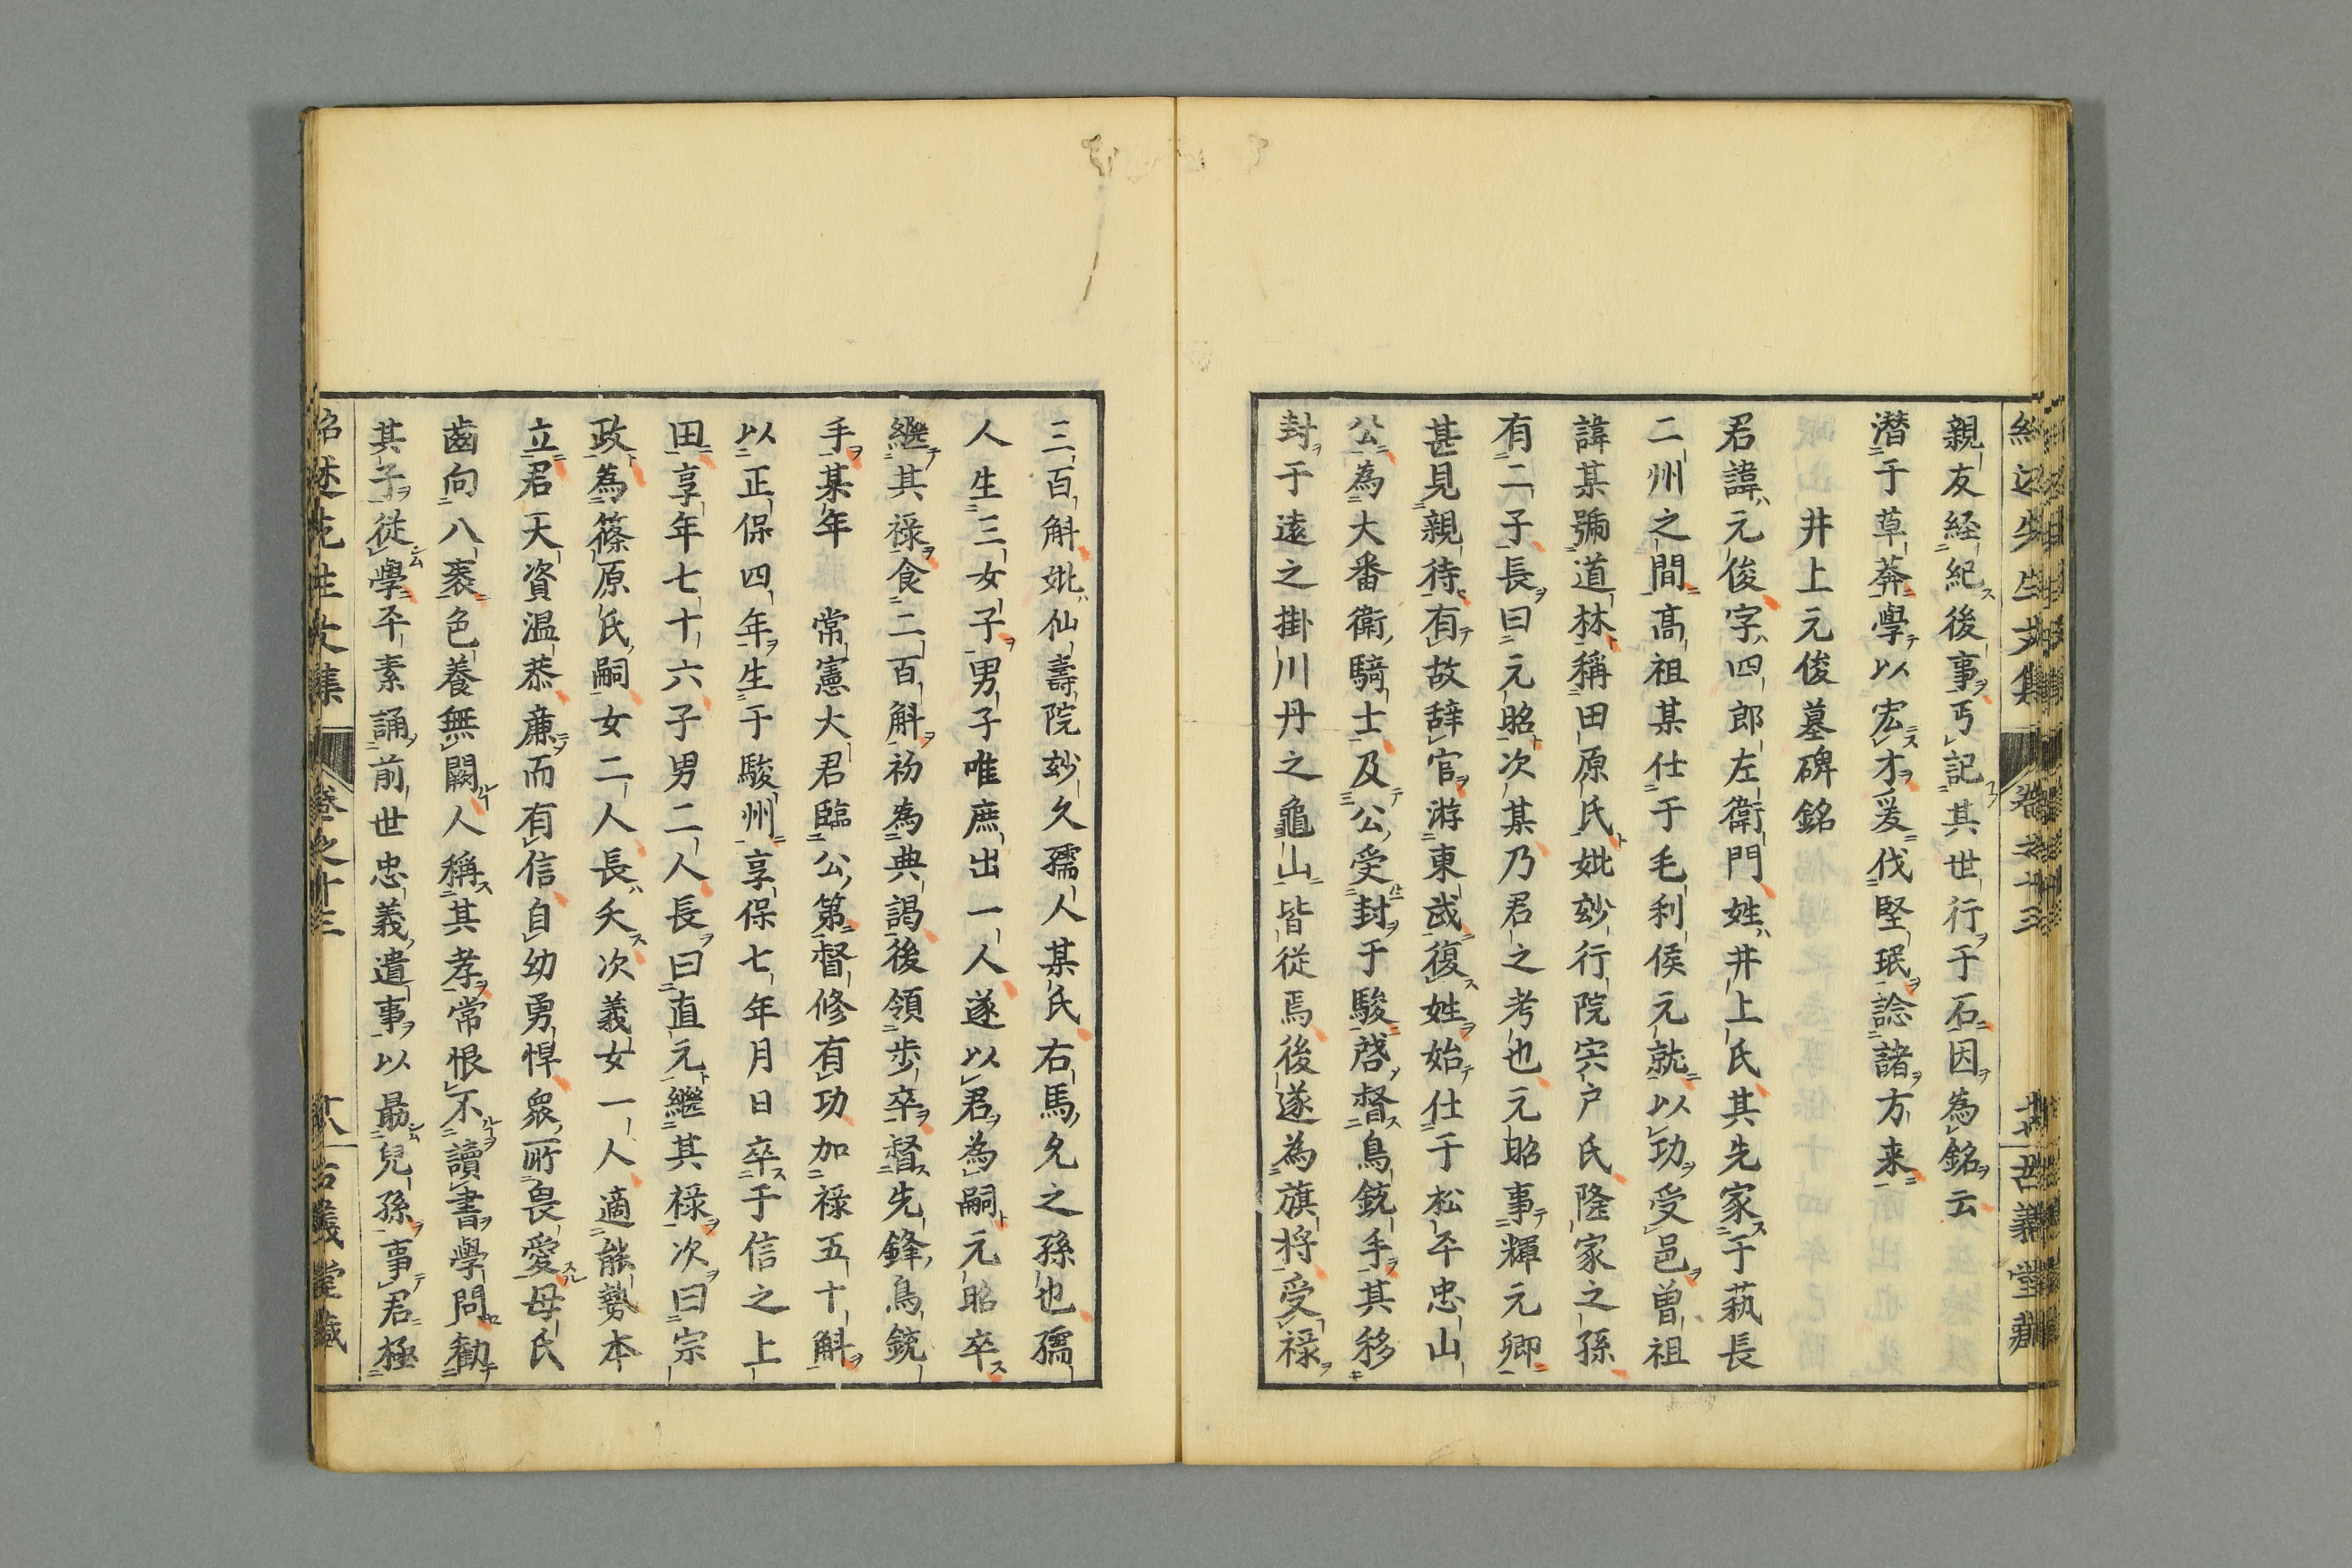 紹述先生文集 卷之十三 古義堂藏
親友経紀後事丐記其世行于石因為銘云
潜于草莽學以宏才爰伐堅珉諗諸方来
井上元俊墓碑銘
君諱元俊字四郎左衛門姓井上氏其先家于萟長
二州之間高祖某仕于毛利侯元就以功受邑曽祖
諱某號道林稱田原氏妣玅行院宍戸氏隆家之孫
有二子長曰元昭次某乃君之考也元昭事輝元卿
甚見親待有故辞官游東武復姓始仕于松平忠山
公為大番衛騎士及公受封于駿啓督鳥銃手其移
封于遠之掛川丹之龜山皆従焉後遂為旗将受禄
三百斛妣仙壽院玅久孺人某氏右馬允之孫也孺
人生三女子男子唯庶出一人遂以君為嗣元昭卒
繼其禄食二百斛初為典謁後領歩卒督先鋒鳥銃
手某年 常憲大君臨公第督修有功加禄五十斛
以正保四年生于駿州享保七年月日卒于信之上
田享年七十六子男二人長曰直元繼其禄次曰宗
政為篠原氏嗣女二人長夭次義女一人適能勢本
立君天資温恭亷而有信自幼勇悍衆所畏愛母氏
齒向八袠色養無闕人稱其孝常恨不讀書學問勧
其子從學平素誦前世忠義遺事以最兒孫事君極
紹述先生文集 卷之十三 十八 古義堂藏